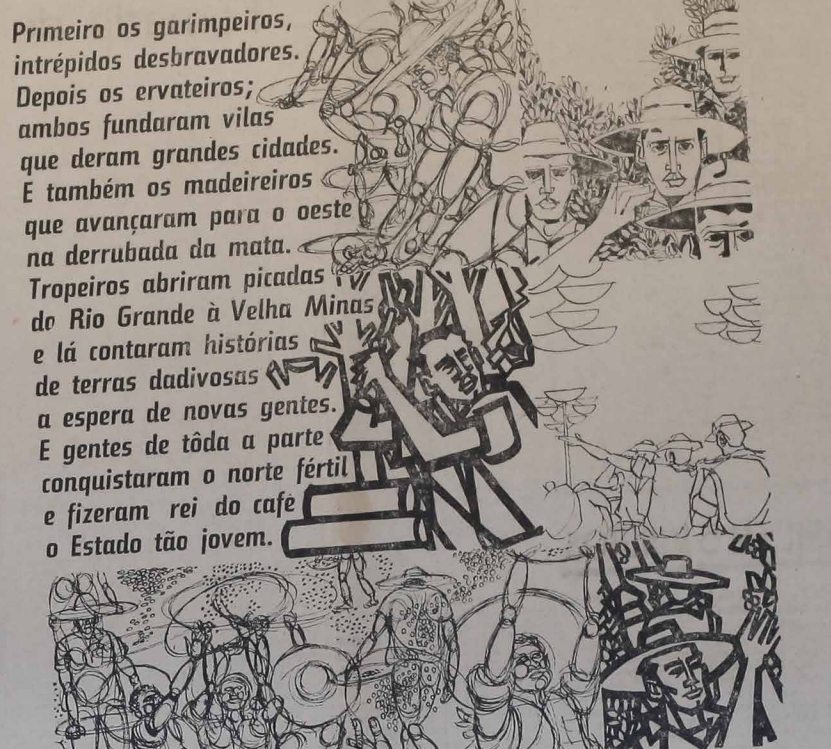 Primeiro os garimpeiros,
intrépidos desbravadores.
Depois os ervateiros;
ambos fundaram vilas
que deram grandes cidades.
E também os madeireiros
que avançaram para o oeste
na derrubada da mata.
Tropeiros abriram picadas
do Rio Grande à Velha Minas
e lá contaram histórias
de terras dadivosas
a espera de novas gentes.
E gentes de tôda a parte
conquistaram o norte fértil
e fizeram rei do café
o Estado tão jovem.